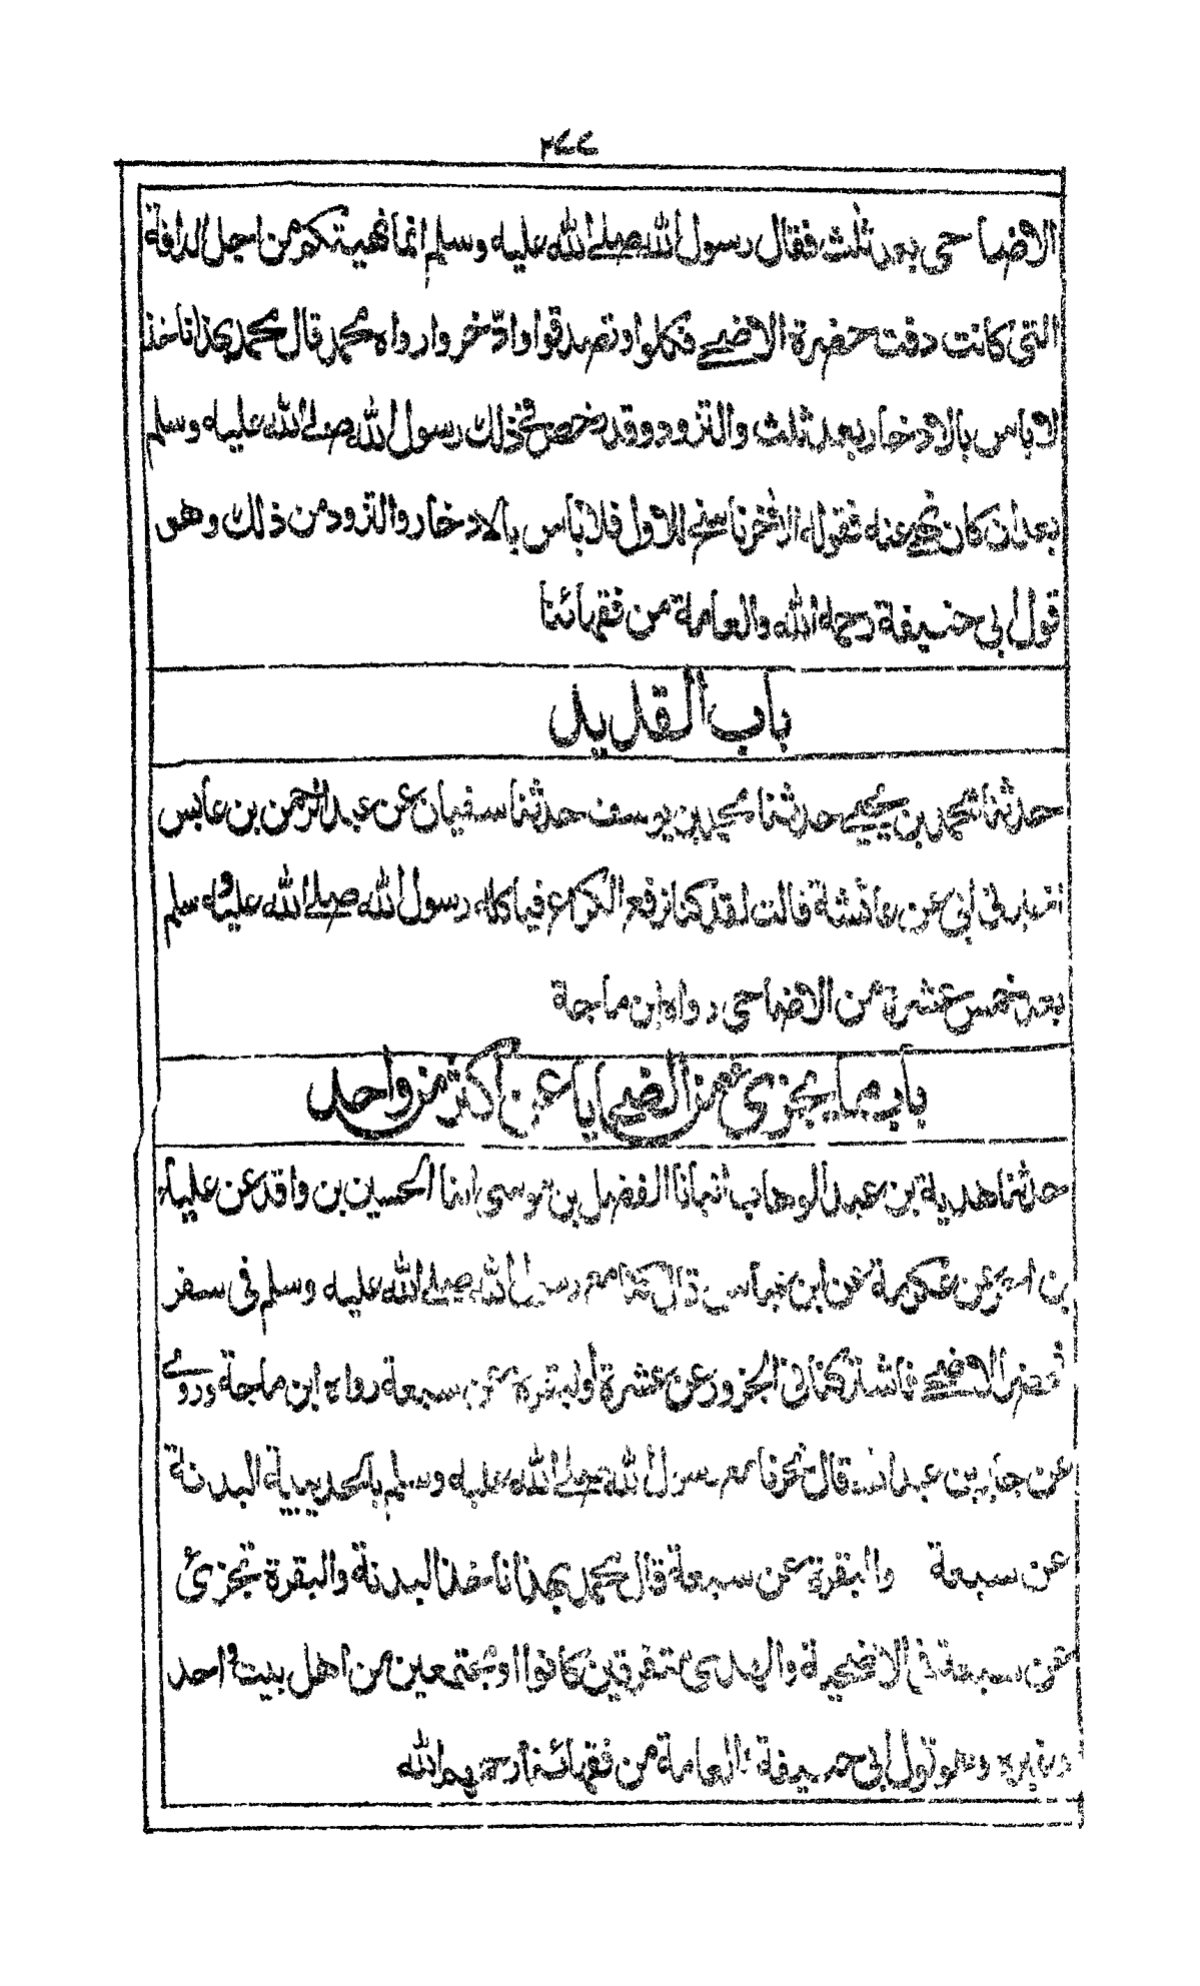 ٢٤٤
الاضاحى بعد ثلث فقال رسول الله صلے الله عليه وسلم انما نهيتكم من اجل الدافة
التى كانت دفت حضرة الاضحے فكلوا وتصدقوا وادّخروا رواه محمد قال محمد بهذا ناخذ
لا باس بالادخار بعد ثلث والتزود وقد رخص فى ذلك رسول الله صلے الله عليه وسلم
بعد ان كان نهى عنه فقوله الاٰخر ناسخ للاول فلا باس بالادخار والتزود من ذلك وهو
قول ابى حنيفة رحمه الله والعامة من فقهائنا
باب القديد
حدثنا محمد بن يحيے حدثنا محمد بن يوسف حدثنا سفيان عن عبد الرحمن بن عابس
اخبرنى ابى عن عائشة قالت لقد كنا نرفع الكراع فياكله رسول الله صلے الله عليه وسلم
بعد خمس عشرة من الاضاحى رواه ابن ماجة
باب ما يجزى من الضحايا عن اكثر من واحد
حدثنا هدية بن عبد الوهاب انبانا الفضل بن موسى انبانا الحسين بن واقد عن علباء
بن احمر عن عكرمة عن ابن عباس قال كنا مع رسول الله صلے الله عليه وسلم فى سفر
فحضر الاضحے فاشتركنا فى الجزور عن عشرة والبقرة عن سبعة رواه ابن ماجة وروے
عن جابر بن عبد الله قال نحرنا مع رسول الله صلے الله عليه وسلم بالحديبية البدنة
عن سبعة والبقرة عن سبعة قال محمد بهذا ناخذ البدنة والبقرة تجزئ
عن سبعة فى الاضحية والهدى متفرقين كانوا او مجتمعين من اهل بيت واحد
وغيره وهو قول ابى حنيفة والعامة من فقهائنا رحمهم الله